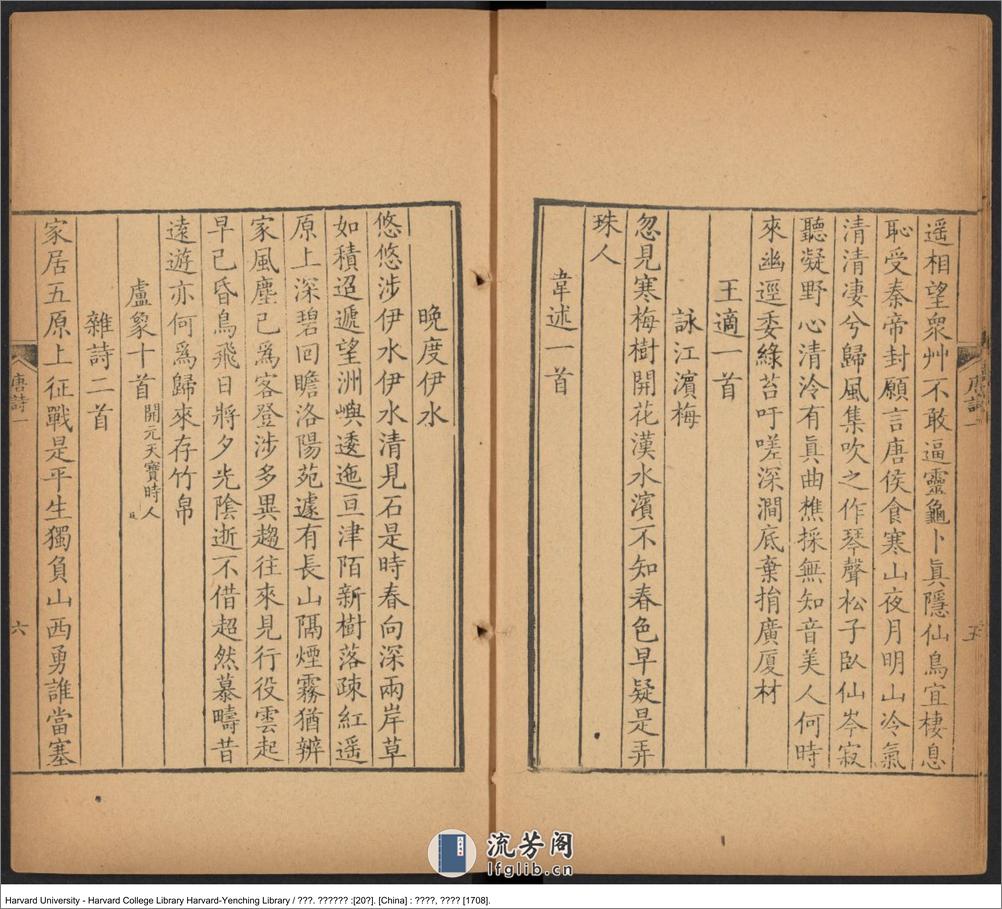 遥相望衆艸不敢逼靈龜卜眞隱仙鳥宜棲息
恥受秦帝封願言唐侯食寒山夜月明山冷氣
清清凄兮歸風集吹之作琴聲松子臥仙岑寂
聽凝野心清泠有眞曲樵採無知音美人何時
來幽逕委綠苔吁嗟深澗底棄捐廣厦材
王適一首
詠江濱梅
忽見寒梅樹開花漢水濱不知春色早疑是弄
珠人
韋述一首
唐詩一
五
晚度伊水
悠悠涉伊水伊水清見石是時春向深兩岸草
如積迢遞望洲嶼逶迤亘津陌新樹落疎紅遥
原上深碧回瞻洛陽苑遽有長山隔煙霧猶辨
家風塵已爲客登涉多異趨往來見行役雲起
早已昏鳥飛日將夕光陰逝不借超然慕疇昔
遠遊亦何爲歸來存竹帛
盧象十首開元天寶時人
雜詩二首
家居五原上征戰是平生獨負山西勇誰當塞
唐詩一
六
流芳阁
lfglib.cn
Harvard University - Harvard College Library Harvard-Yenching Library / ???. ?????? :[20?]. [China] : ????, ???? [1708].